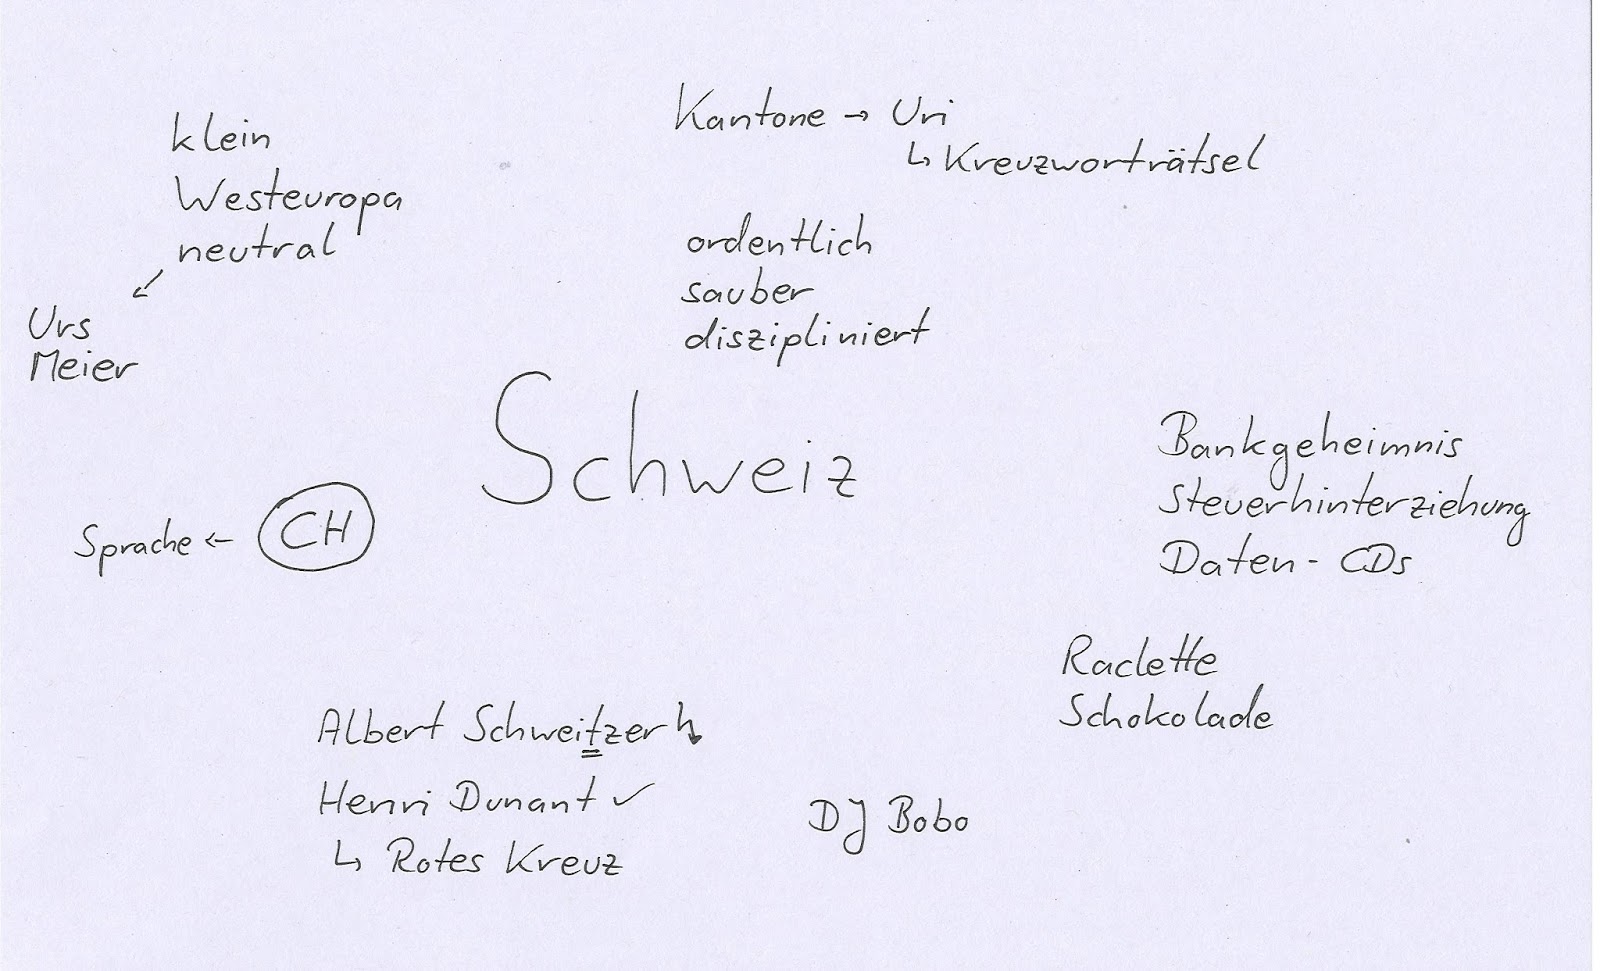 klein
Westeuropa
neutral
↙
Urs
Meier
Kantone → Uri
↳ Kreuzworträtsel
ordentlich
sauber
diszipliniert
Schweiz
Sprache ← CH
Bankgeheimnis
Steuerhinterziehung
Daten-CDs
Raclette
Schokolade
Albert Schweitzer
Henri Dunant ✓
↳ Rotes Kreuz
DJ Bobo